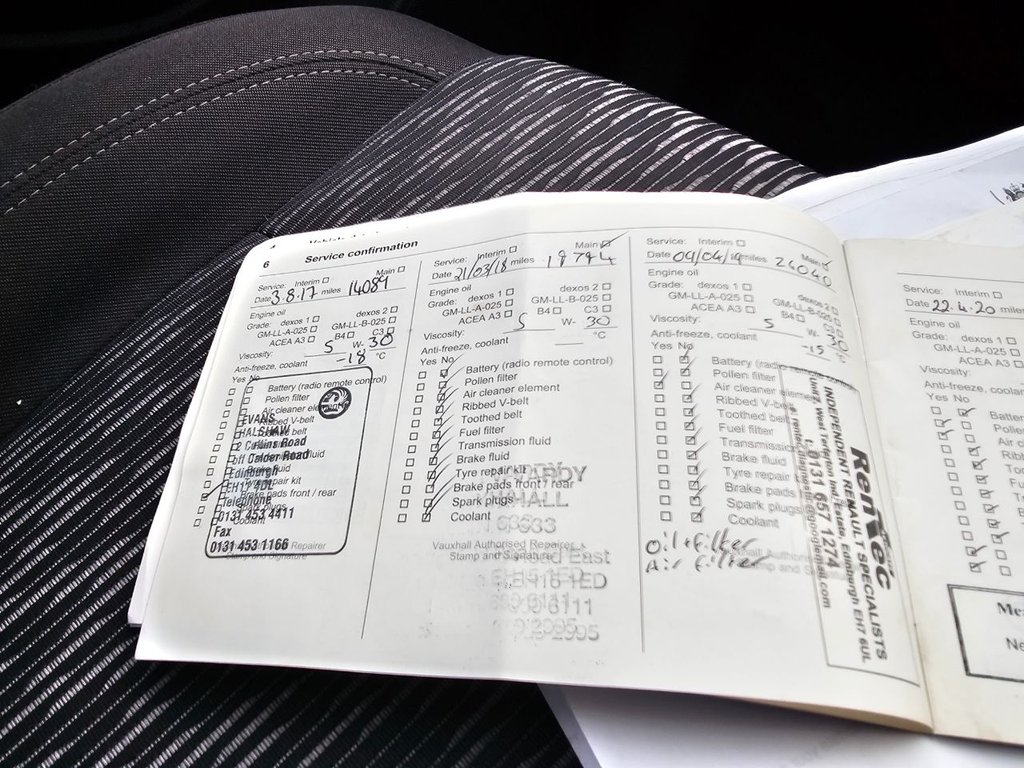 6 Service confirmation
Service: Interim Main
Date 3.8.17 miles 14089
Engine oil
Grade: dexos 1 dexos 2
GM-LL-A-025 GM-LL-B-025
ACEA A3 B4 C3
Viscosity: 5 W- 30
Anti-freeze, coolant -18 °C
Yes No
Battery (radio remote control)
Pollen filter
Air cleaner
Ribbed V-belt
belt
fluid
Brake fluid
repair kit
Brake pads front / rear
Coolant
EVANS
HALSHAW
2 Cultins Road
off Calder Road
Edinburgh
EH11 4DL
Telephone
0131 453 4411
Fax
0131 453 1166
Repairer
Stamp and Signature
Service: Interim Main
Date 21/03/18 miles 19794
Engine oil
Grade: dexos 1 dexos 2
GM-LL-A-025 GM-LL-B-025
ACEA A3 B4 C3
Viscosity: 5 W- 30
Anti-freeze, coolant °C
Yes No
Battery (radio remote control)
Pollen filter
Air cleaner element
Ribbed V-belt
Toothed belt
Fuel filter
Transmission fluid
Brake fluid
Tyre repair kit
Brake pads front / rear
Spark plugs
Coolant
Vauxhall Authorised Repairer
Stamp and Signature
East
Service: Interim Main
Date 09/04/19 miles 26040
Engine oil
Grade: dexos 1 dexos 2
GM-LL-A-025 GM-LL-B-025
ACEA A3 B4 C3
Viscosity: 5 W- 30
Anti-freeze, coolant -15 °C
Yes No
Battery (radio
Pollen filter
Air cleaner
Ribbed V-be
Toothed bel
Fuel filter
Transmissi
Brake fluid
Tyre repair
Brake pads
Spark plugs
Coolant
Oil filter
Air filter
RenTec
INDEPENDENT RENAULT SPECIALISTS
Unit 2, West Telferton Ind. Estate, Edinburgh EH7 6UL
t: 0131 657 1274
Service: Interim
Date 22.4.20 miles
Engine oil
Grade: dexos 1
GM-LL-A-025
ACEA A3
Viscosity:
Anti-freeze, coolant
Yes No
Batter
Polle
Air c
Ribb
Toot
Fue
Tra
Bra
Ty
Br
S
C
Me
Ne